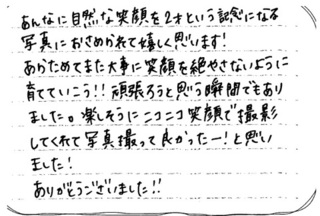 あんなに自然な笑顔を2才という記念になる
写真におさめられて嬉しく思います!
あらためてまた大事に笑顔を絶やさないように
育てていこう!!頑張ろうと思う瞬間でもあり
ました。楽しそうにニコニコ笑顔で撮影
してくれて写真撮って良かったー!と思い
ました!
ありがとうございました!!